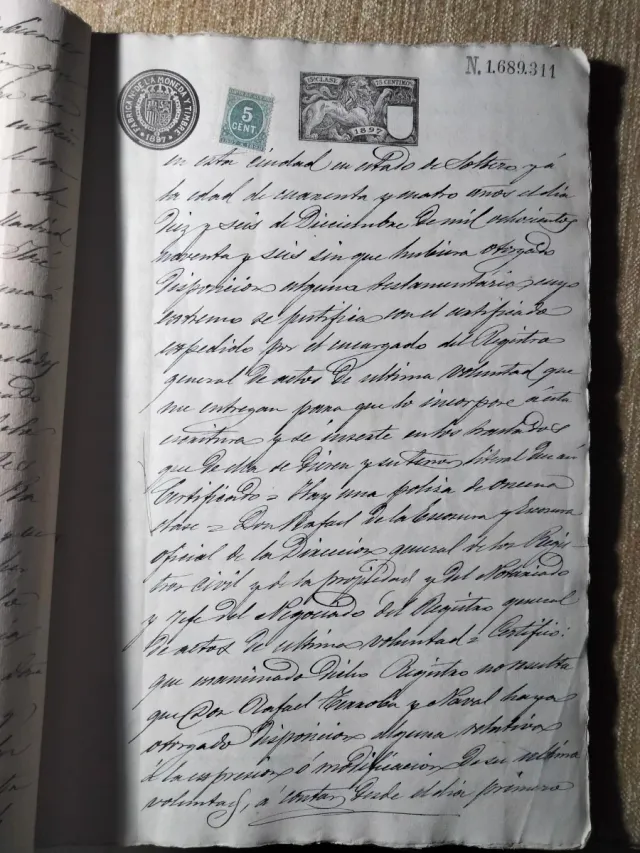 N. 1.689.311
FABRICA DE LA MONEDA Y TIMBRE
1897
5
CENT.
CLASE
CENTIMOS
1897
en esta ciudad en estado de Soltero y á
la edad de cuarenta y cuatro años el dia
diez y seis de Diciembre de mil ochocientos
noventa y seis sin que hubiera otorgado
disposicion alguna testamentaria, cuyo
estremo se justifica con el certificado
expedido por el encargado del Registro
general de actos de ultima voluntad que
me entregan para que lo incorpore á esta
escritura y se inserte en los traslados
que de ella se dieren y su tenor literal dice así
Certificado = Hay una poliza de oncena
clase = Don Rafael de la Escosura y Escosura
oficial de la Direccion general de los Regis-
tros civil y de la propiedad y del Notariado
y Jefe del Negociado del Registro general
de actos de ultima voluntad = Certifico:
que examinado dicho Registro no resulta
que Don Rafael y Naval haya
otorgado disposicion alguna relativa
á la expresion ó modificacion de su ultima
voluntad, á contar desde el dia primero